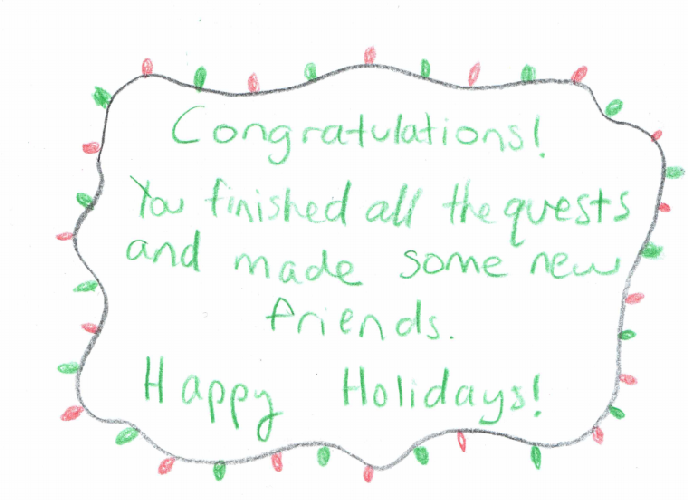 Congratulations!
You finished all the quests
and made some new
friends.
Happy Holidays!